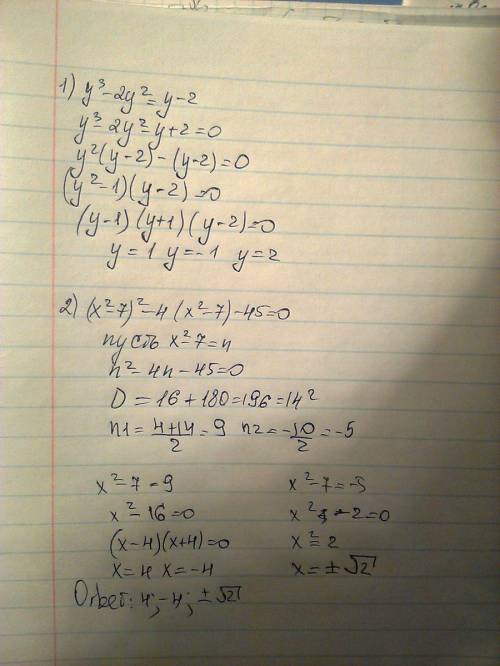 1) y³-2y²=y-2
y³-2y²-y+2=0
y²(y-2)-(y-2)=0
(y²-1)(y-2)=0
(y-1)(y+1)(y-2)=0
y=1 y=-1 y=2
2) (x²-7)²-4(x²-7)-45=0
пусть x²-7=n
n²-4n-45=0
D=16+180=196=14²
n1=(4+14)/2=9 n2=-10/2=-5
x²-7=9 x²-7=-5
x²-16=0 x²-2=0
(x-4)(x+4)=0 x²=2
x=4 x=-4 x=±√2
Ответ: 4;-4; ±√2